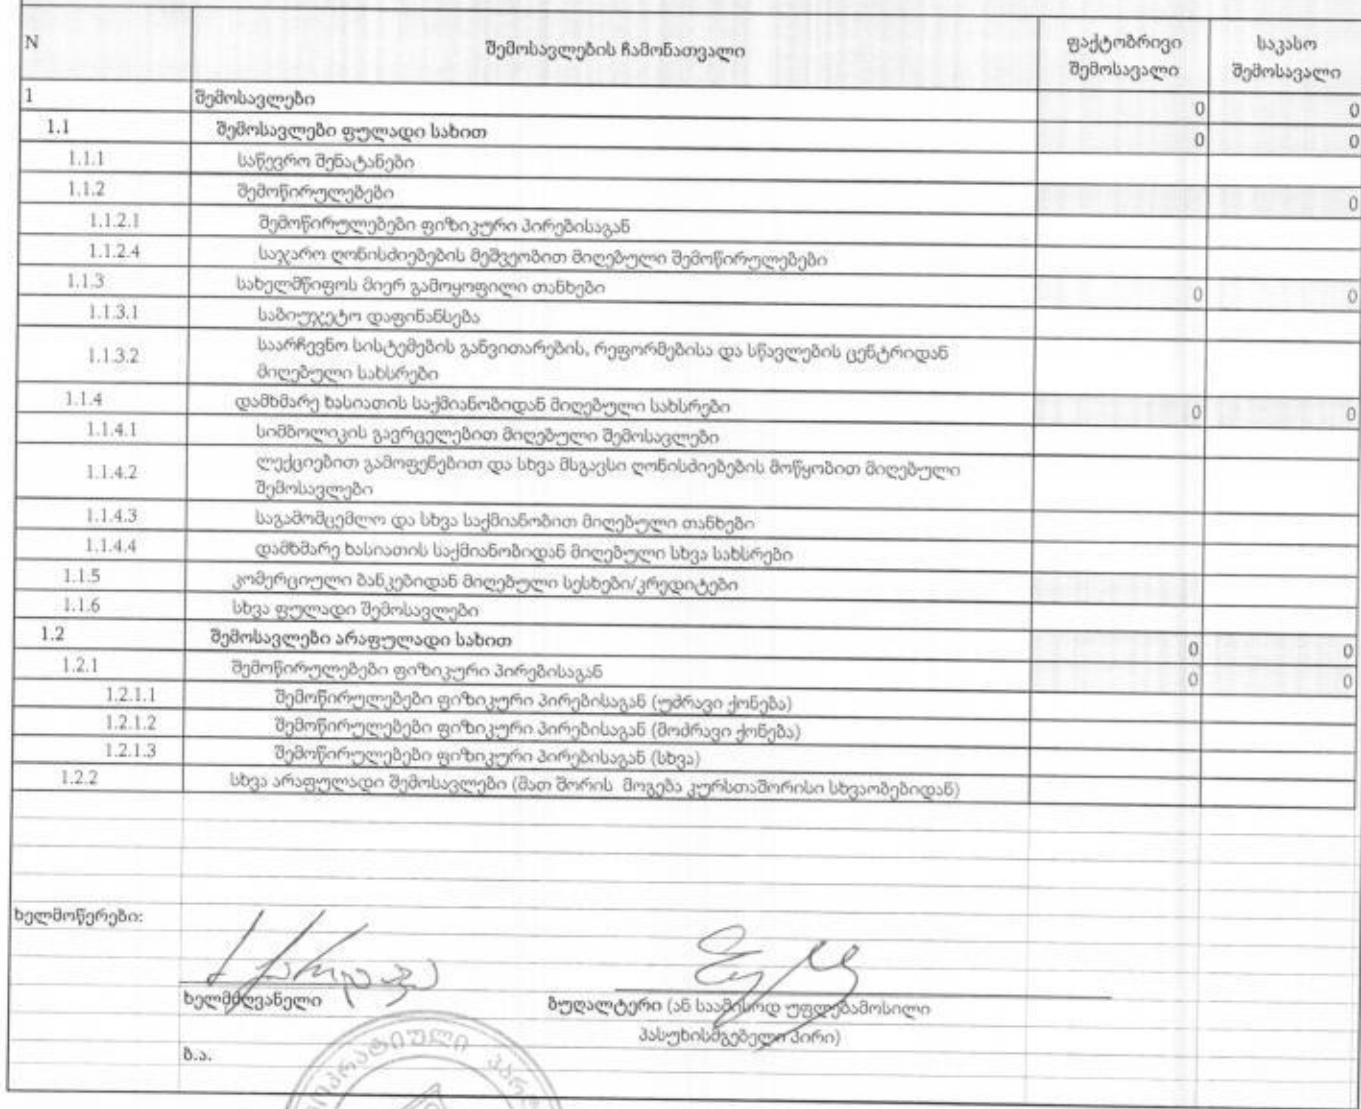 N შემოსავლების ჩამონათვალი ფაქტობრივი საკასო
შემოსავალი შემოსავალი
1 შემოსავლები 0 0
1.1 შემოსავლები ფულადი სახით 0 0
1.1.1 საწევრო შენატანები
1.1.2 შემოწირულებები 0
1.1.2.1 შემოწირულებები ფიზიკური პირებისაგან
1.1.2.4 საჯარო ღონისძიებების მეშვეობით მიღებული შემოწირულებები
1.1.3 სახელმწიფოს მიერ გამოყოფილი თანხები 0 0
1.1.3.1 საბიუჯეტო დაფინანსება
1.1.3.2 საარჩევნო სისტემების განვითარების, რეფორმებისა და სწავლების ცენტრიდან
მიღებული სახსრები
1.1.4 დამხმარე ხასიათის საქმიანობიდან მიღებული სახსრები 0 0
1.1.4.1 სიმბოლიკის გავრცელებით მიღებული შემოსავლები
1.1.4.2 ლექციებით გამოფენებით და სხვა მსგავსი ღონისძიებების მოწყობით მიღებული
შემოსავლები
1.1.4.3 საგამომცემლო და სხვა საქმიანობით მიღებული თანხები
1.1.4.4 დამხმარე ხასიათის საქმიანობიდან მიღებული სხვა სახსრები
1.1.5 კომერციული ბანკებიდან მიღებული სესხები/კრედიტები
1.1.6 სხვა ფულადი შემოსავლები
1.2 შემოსავლები არაფულადი სახით 0 0
1.2.1 შემოწირულებები ფიზიკური პირებისაგან 0 0
1.2.1.1 შემოწირულებები ფიზიკური პირებისაგან (უძრავი ქონება)
1.2.1.2 შემოწირულებები ფიზიკური პირებისაგან (მოძრავი ქონება)
1.2.1.3 შემოწირულებები ფიზიკური პირებისაგან (სხვა)
1.2.2 სხვა არაფულადი შემოსავლები (მათ შორის მოგება კურსთაშორისი სხვაობებიდან)
ხელმოწერები:
ხელმძღვანელი ბუღალტერი (ან საამისოდ უფლებამოსილი
პასუხისმგებელი პირი)
ბ.ა.